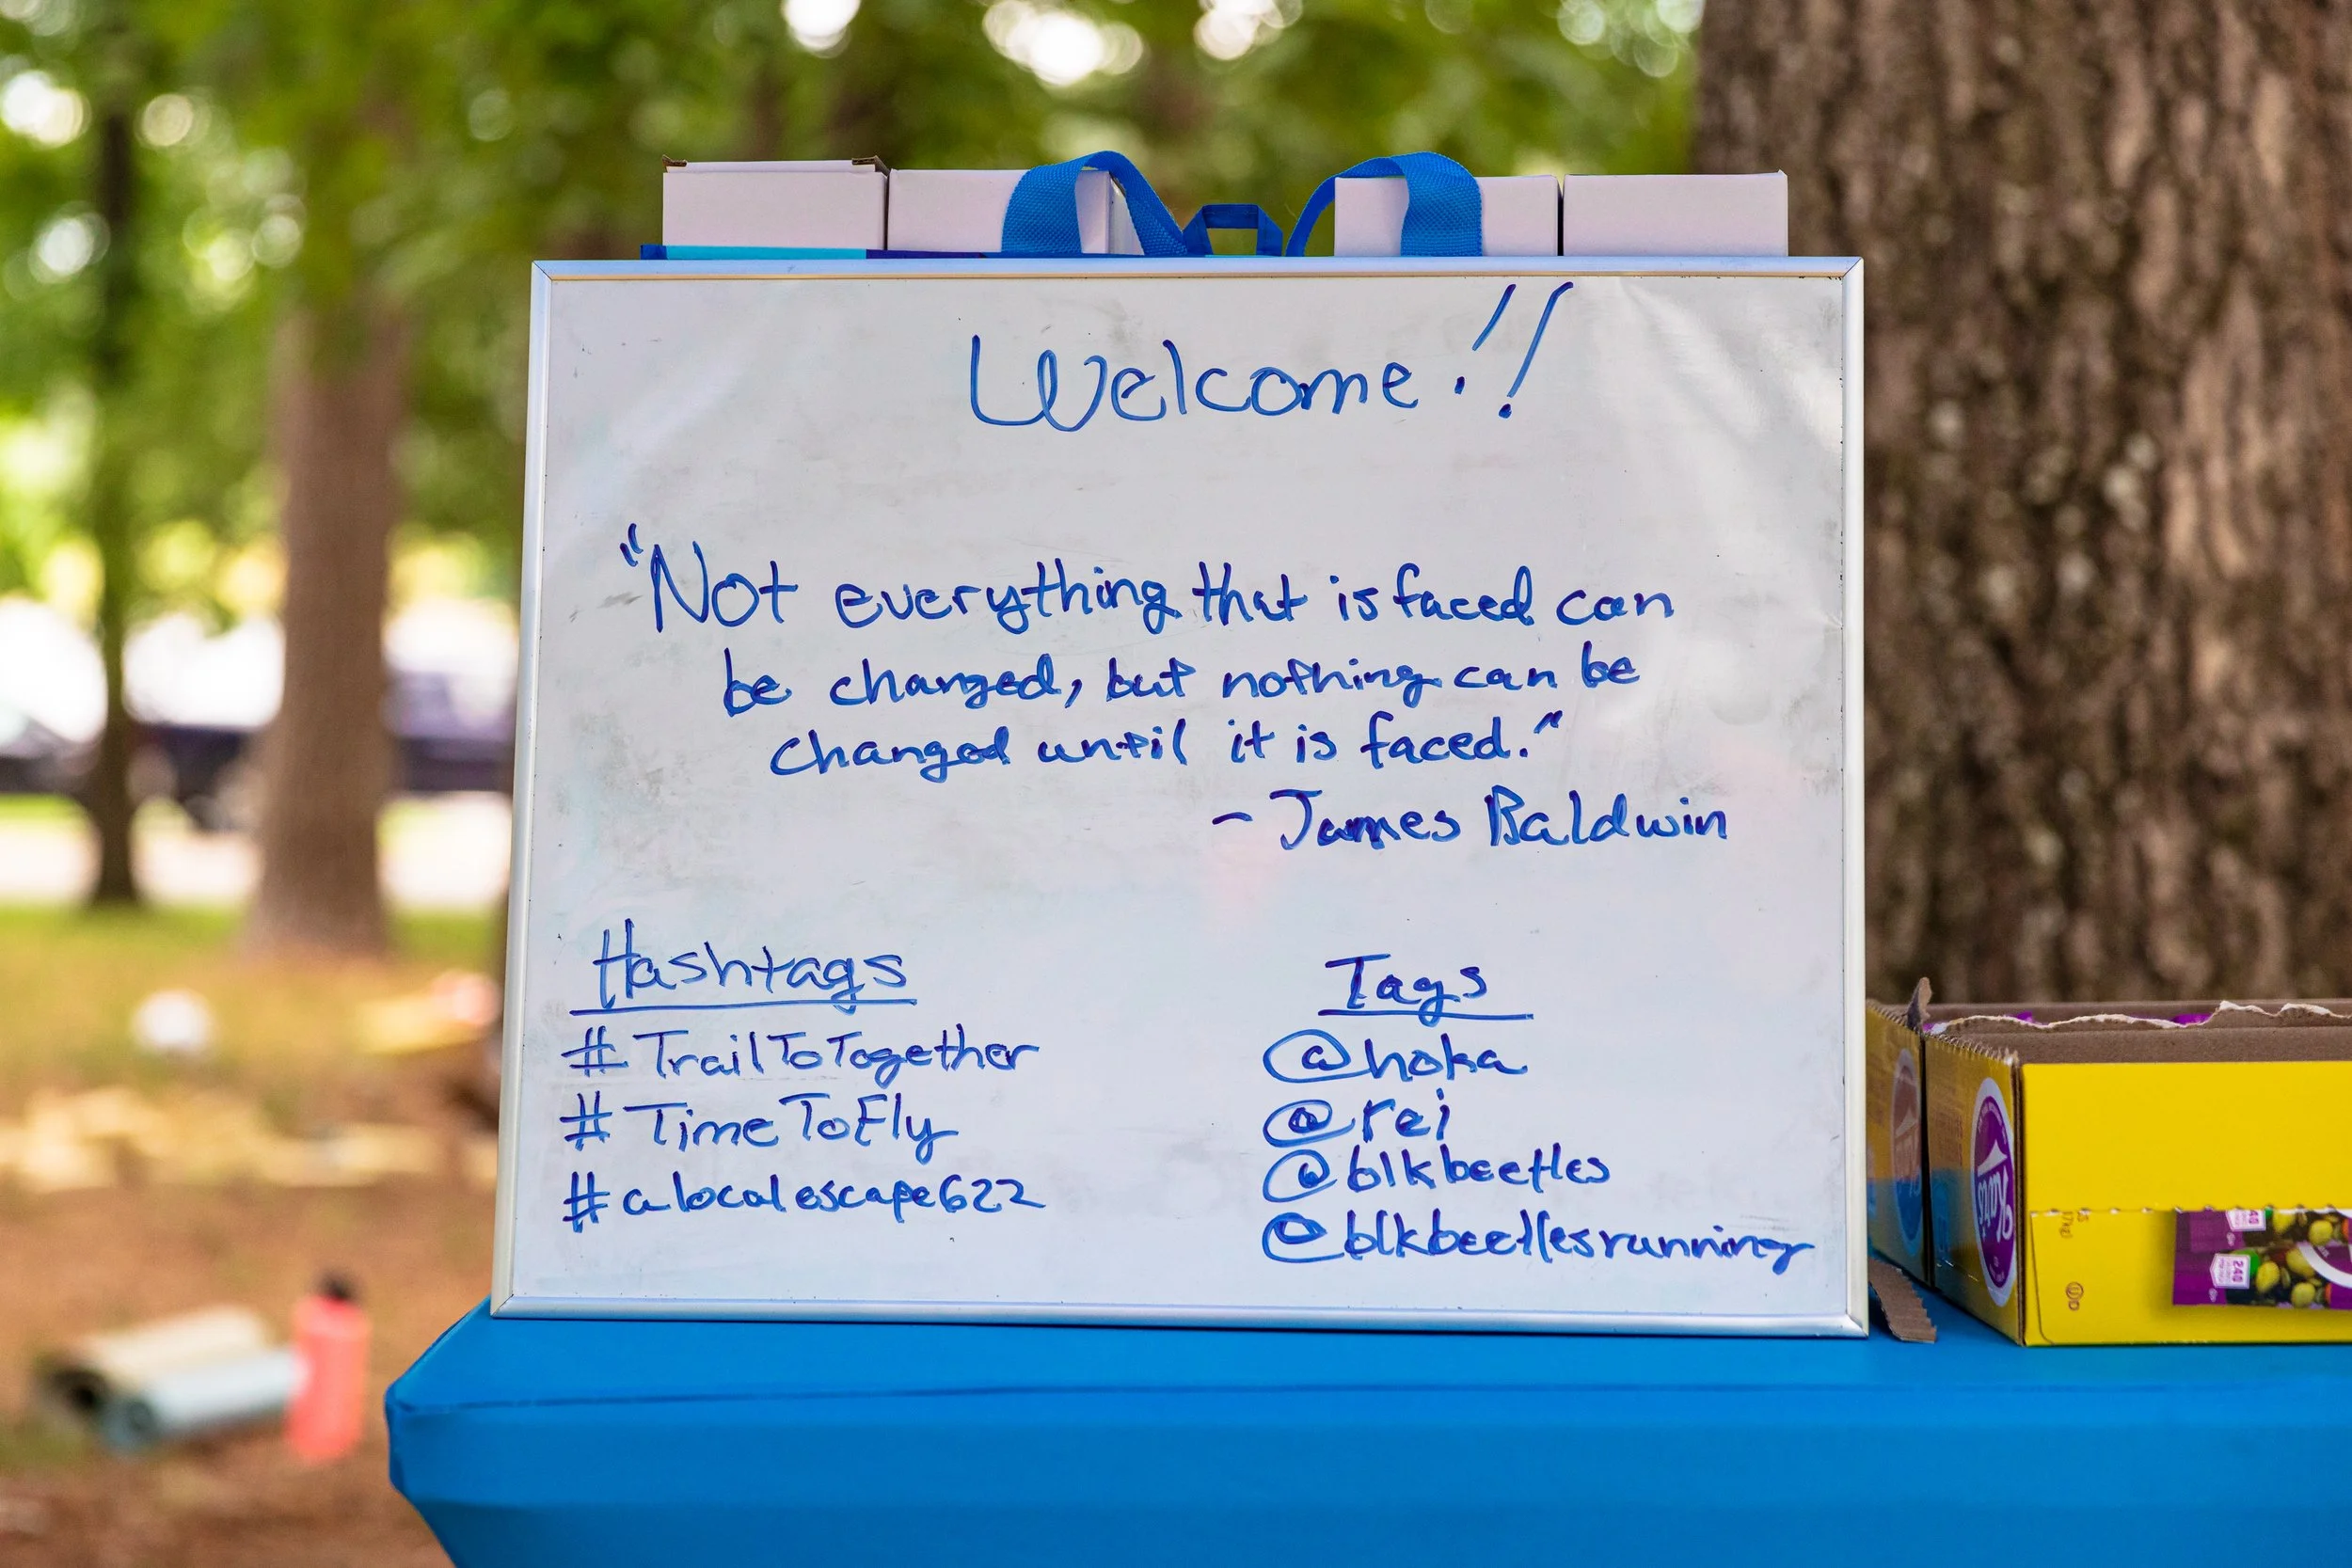 Welcome!!
"Not everything that is faced can
be changed, but nothing can be
changed until it is faced."
- James Baldwin
Hashtags
#TrailToTogether
#TimeToFly
#alocalescape622
Tags
@hoka
@rei
@blkbeetles
@blkbeetlesrunning
240
240